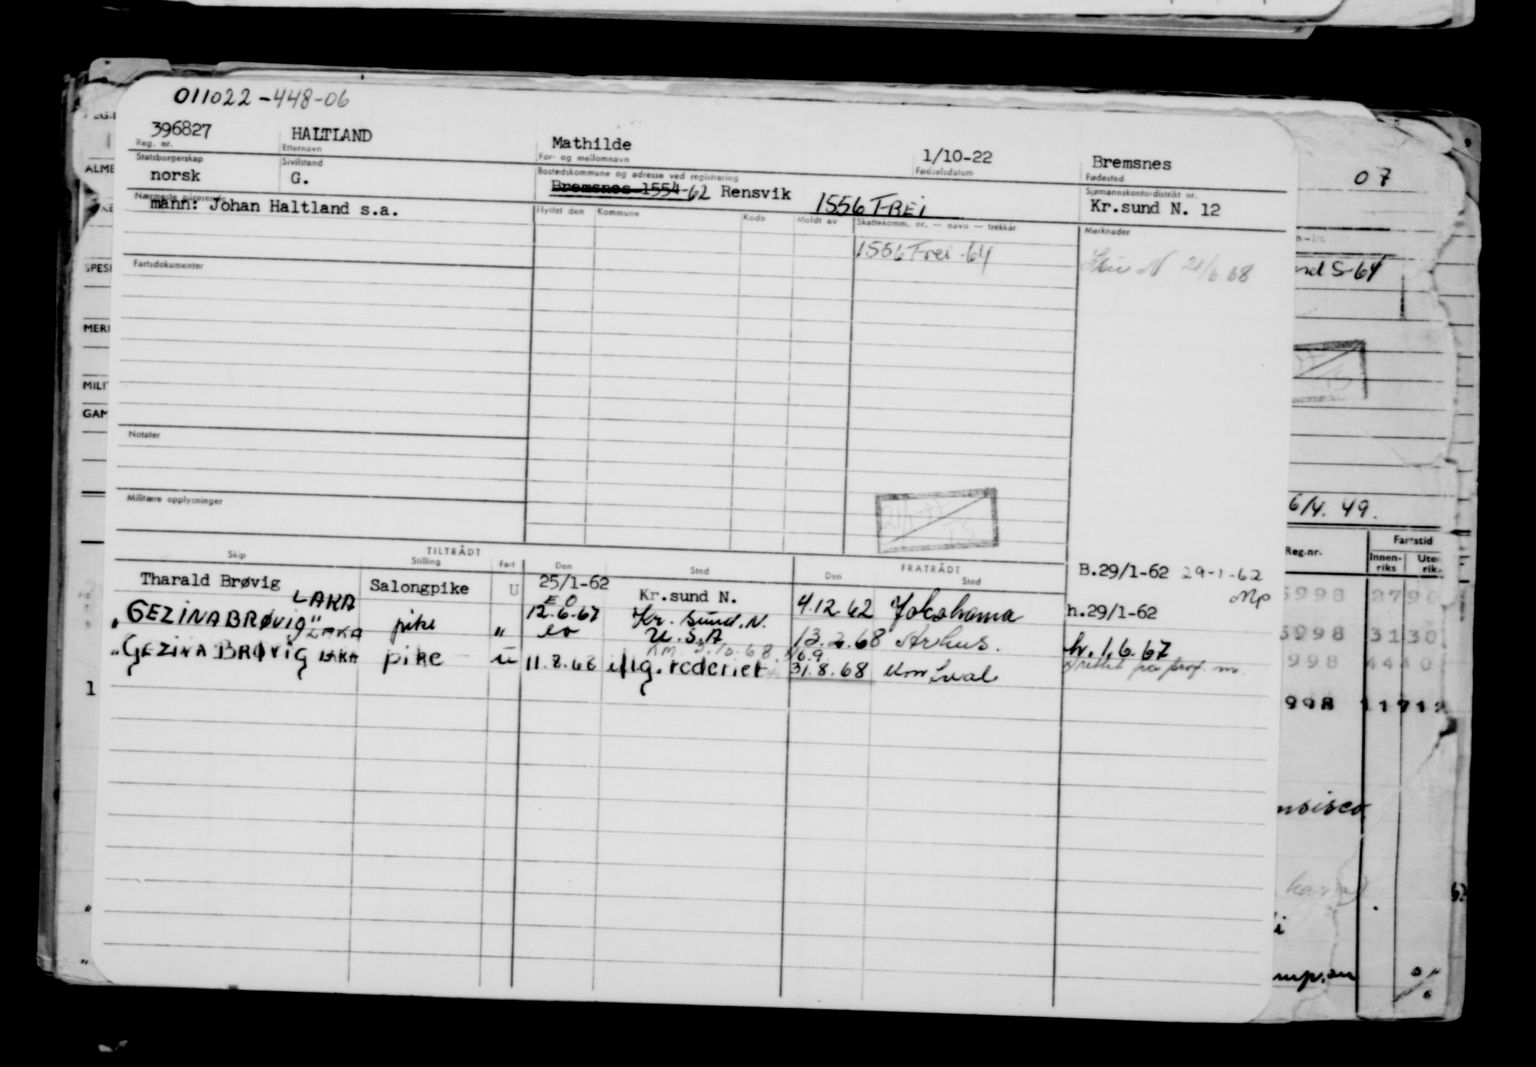 011022-448-06
396827 HALTLAND Mathilde 1/10-22 Bremsnes
Reg. nr. Etternavn For- og mellomnavn Fødselsdatum Fødested
07
Statsborgerskap Sivilstand Bostedskommune og adresse ved registrering Sjømannskontordistrikt nr.
norsk G. Bremsnes 1554-62 Rensvik 1556 FREI Kr.sund N. 12
Nærmeste pårørende
mann: Johan Haltland s.a.
Flyttet den Kommune Kode Meldt av Skattekomm. nr. — navn — trekkår Merknader
1556 Frei -64
21/6 68
Fartsdokumenter
S-64
Notater
Militære opplysninger
6/4. 49.
TILTRÅDT FRATRÅDT
Skip Stilling Fart Den Sted Den Sted
Reg.nr. Fartstid
Innen-riks
B.29/1-62 29-1-62
Tharald Brøvig Salongpike U 25/1-62 Kr.sund N. 4.12.62 Yokohama h.29/1-62
LAKA
"GEZINA BRØVIG" pike " 12.6.67 Kr. sund. N. 13.2.68 Århus. h. 1.6.67
LAKA U.S.A
"GEZINA BRØVIG LAKA pike U 11.8.68 iflg. rederiet 31.8.68
5998
5998
998
998
1